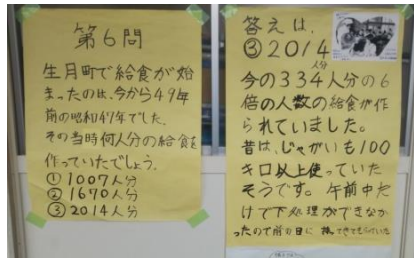 第6問
生月町で給食が始
まったのは、今から49年
前の昭和47年でした。
その当時何人分の給食を
作っていたでしょう。
① 1007人分
② 1670人分
③ 2014人分
答えは、
③2014
人分
今の334人分の6
倍の人数の給食が作
られていました。
昔は、じゃがいも100
キロ以上使っていた
そうです。午前中だ
けで下処理ができなか
ったので前の日に